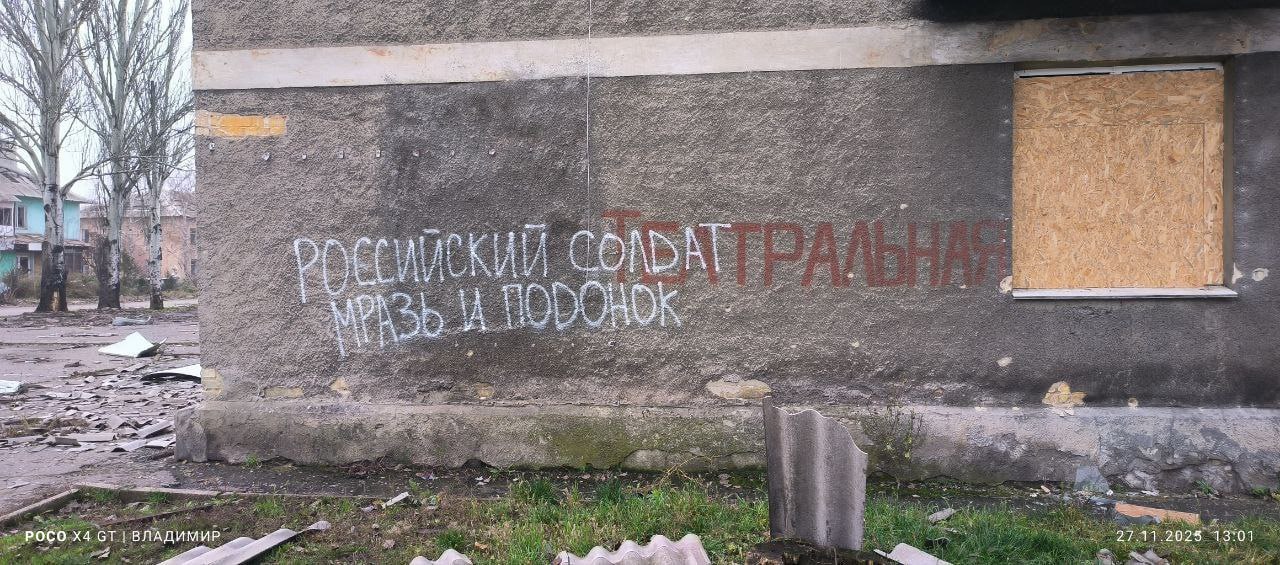 РОССИЙСКИЙ СОЛDАТ
МРАЗЬ И ПОDОНОК
ТЕАТРАЛЬНАЯ
POCO X4 GT | ВЛАДИМИР
27.11.2025 13:01